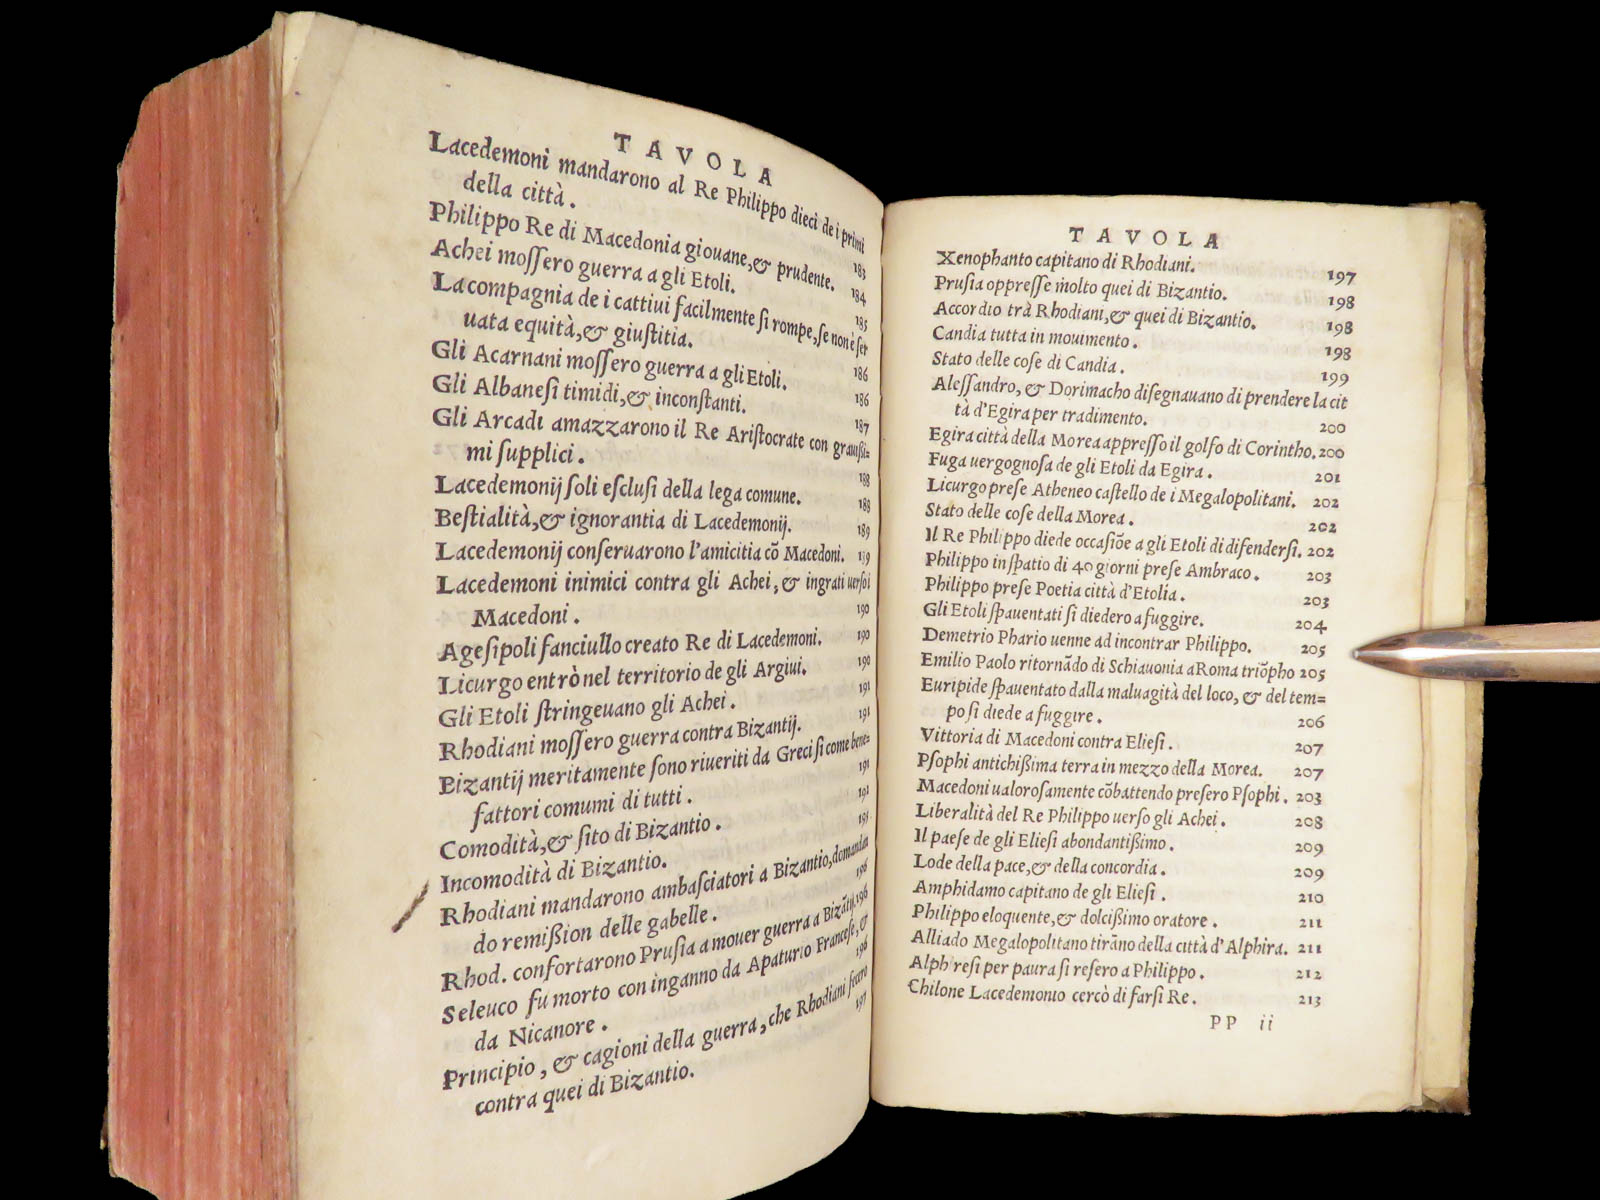 TAVOLA
Lacedemoni mandarono al Re Philippo dieci de i primi
della città. 183
Philippo Re di Macedonia giouane,& prudente. 184
Achei moſſero guerra a gli Etoli. 185
La compagnia de i cattiui facilmente ſi rompe, ſe non è ſer
uata equità,& giuſtitia. 186
Gli Acarnani moſſero guerra a gli Etoli. 186
Gli Albaneſi timidi,& inconſtanti. 187
Gli Arcadi amazzarono il Re Ariſtocrate con grauiſſi=
mi ſupplici. 188
Lacedemonij ſoli eſcluſi della lega comune. 188
Beſtialità,& ignorantia di Lacedemonij. 189
Lacedemonij conſeruarono l'amicitia cõ Macedoni. 189
Lacedemoni inimici contra gli Achei,& ingrati uerſo i
Macedoni. 190
Ageſipoli fanciullo creato Re di Lacedemoni. 190
Licurgo entrò nel territorio de gli Argiui. 190
Gli Etoli ſtringeuano gli Achei. 191
Rhodiani moſſero guerra contra Bizantij. 191
Bizantij meritamente ſono riueriti da Greci ſi come bene=
fattori comumi di tutti. 191
Comodità,& ſito di Bizantio. 191
Incomodità di Bizantio. 191
Rhodiani mandarono ambaſciatori a Bizantio, domandan
do remiſſion delle gabelle. 196
Rhod. confortarono Pruſia a mouer guerra a Bizãtij. 196
Seleuco fu morto con inganno da Apaturio Franceſe, &
da Nicanore. 196
Principio, & cagioni della guerra, che Rhodiani fecero
contra quei di Bizantio. 197
TAVOLA
Xenophanto capitano di Rhodiani. 197
Pruſia oppreſſe molto quei di Bizantio. 198
Accordio trà Rhodiani,& quei di Bizantio. 198
Candia tutta in mouimento. 198
Stato delle coſe di Candia. 199
Aleſſandro, & Dorimacho diſegnauano di prendere la cit
tà d'Egira per tradimento. 200
Egira città della Morea appreſſo il golfo di Corintho. 200
Fuga uergognoſa de gli Etoli da Egira. 201
Licurgo preſe Atheneo caſtello de i Megalopolitani. 202
Stato delle coſe della Morea. 202
Il Re Philippo diede occaſiõe a gli Etoli di difenderſi. 202
Philippo in ſpatio di 40 giorni preſe Ambraco. 203
Philippo preſe Poetia città d'Etolia. 203
Gli Etoli ſpauentati ſi diedero a fuggire. 204
Demetrio Phario uenne ad incontrar Philippo. 205
Emilio Paolo ritornãdo di Schiauonia a Roma triõpho 205
Euripide ſpauentato dalla maluagità del loco, & del tem=
po ſi diede a fuggire. 206
Vittoria di Macedoni contra Elieſi. 207
Pſophi antichiſſima terra in mezzo della Morea. 207
Macedoni ualoroſamente cõbattendo preſero Pſophi. 203
Liberalità del Re Philippo uerſo gli Achei. 208
Il paeſe de gli Elieſi abondantiſſimo. 209
Lode della pace,& della concordia. 209
Amphidamo capitano de gli Elieſi. 210
Philippo eloquente,& dolciſſimo oratore. 211
Alliado Megalopolitano tirãno della città d'Alphira. 211
Alphireſi per paura ſi reſero a Philippo. 212
Chilone Lacedemonio cercò di farſi Re. 213
PP ii